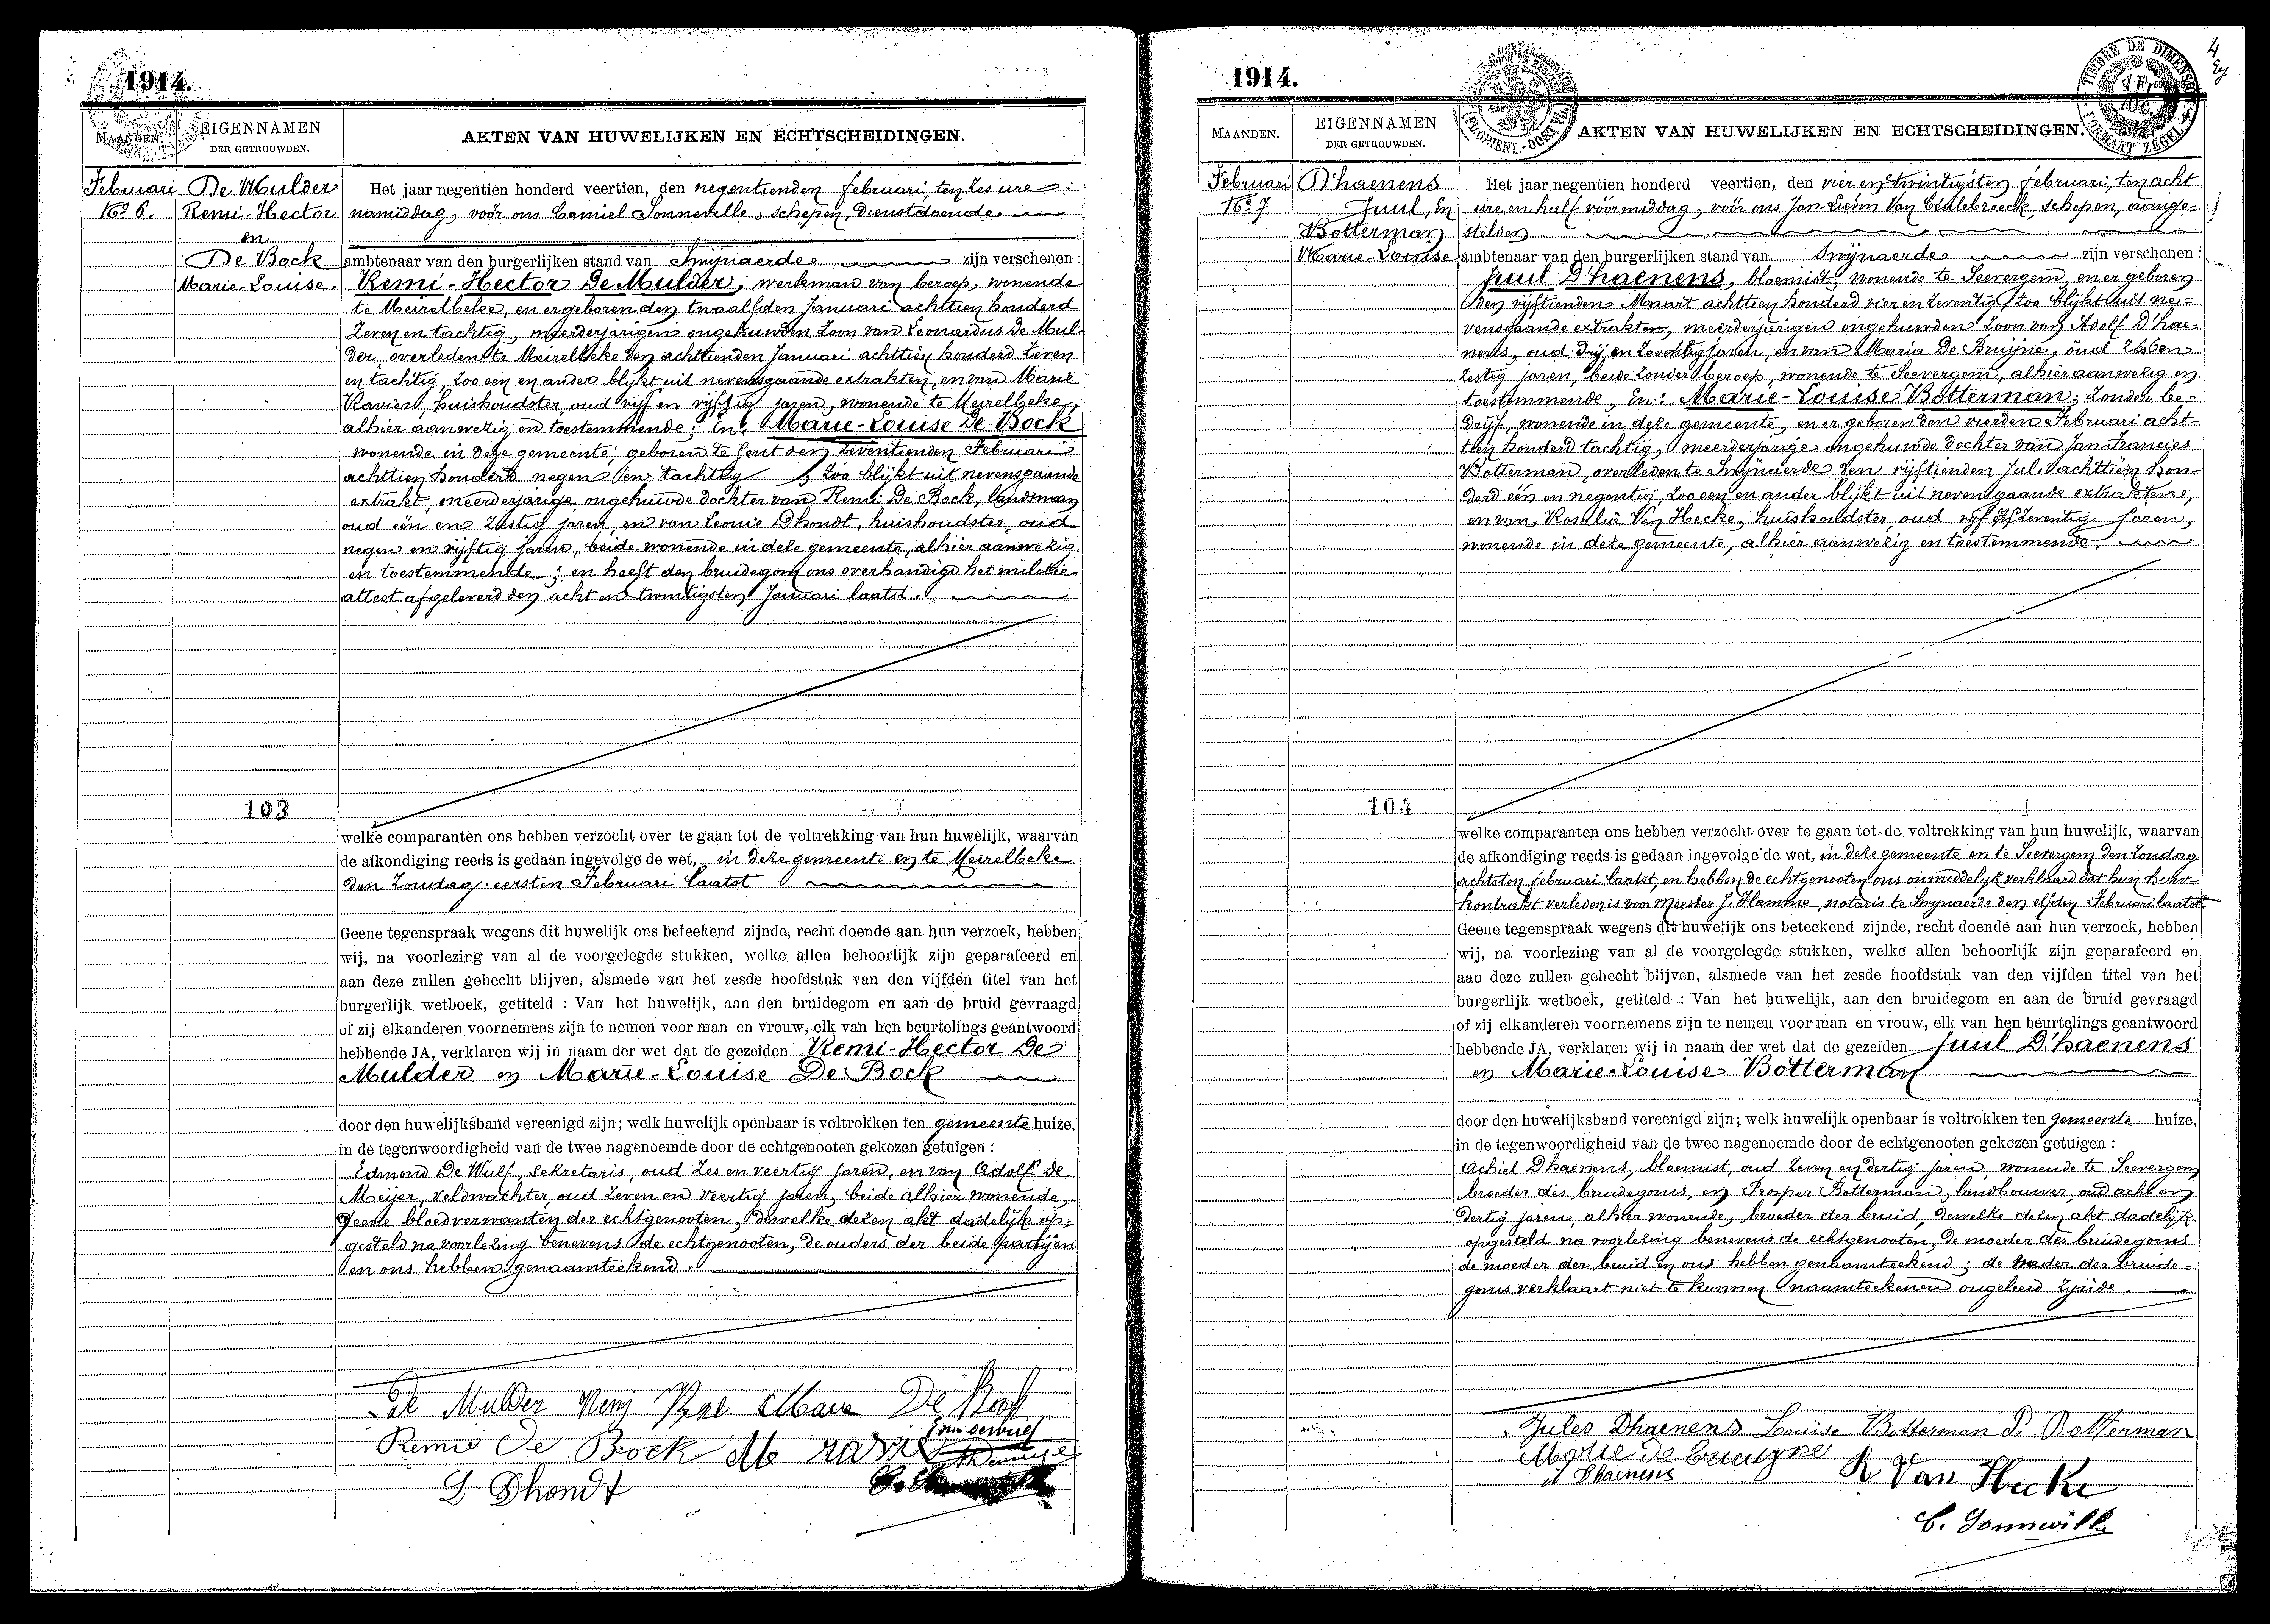 1914.
MAANDEN.
EIGENNAMEN
DER GETROUWDEN.
AKTEN VAN HUWELIJKEN EN ECHTSCHEIDINGEN.
Februari
No 6.
De Mulder
Remi-Hector
en
De Bock
Marie-Louise.
Het jaar negentien honderd veertien, den negentienden februari ten zes ure
namiddag, voor ons Camiel Sonneville, schepen, dienstdoende
ambtenaar van den burgerlijken stand van Swijnaerde zijn verschenen :
Remi-Hector De Mulder, werkman van beroep, wonende
te Meirelbeke, en er geboren den twaalfden Januari achttien honderd
zeven en tachtig, meerderjarigen ongehuwden zoon van Leonardus De Mul-
der overleden te Meirelbeke den achttienden Januari achttien honderd zeven
en tachtig, zoo een en ander blijkt uit nevensgaande extrakten, en van Marie
Ravier, huishoudster oud vijf en vijftig jaren, wonende te Meirelbeke,
alhier aanwezig en toestemmende; En: Marie-Louise De Bock
wonende in deze gemeente, geboren te Gent den zeventienden Februari
achttien honderd negen en tachtig, zoo blijkt uit nevensgaande
extrakt, meerderjarige ongehuwde dochter van Remi De Bock, landsman
oud één en zestig jaren en van Leonie Dhondt, huishoudster, oud
negen en vijftig jaren, beide wonende in deze gemeente, alhier aanwezig
en toestemmende; en heeft den bruidegom ons overhandigd het militie-
attest afgeleverd den acht en twintigsten Januari laatst.
103
welke comparanten ons hebben verzocht over te gaan tot de voltrekking van hun huwelijk, waarvan
de afkondiging reeds is gedaan ingevolge de wet, in deze gemeente en te Meirelbeke
den Zondag eersten Februari laatst
Geene tegenspraak wegens dit huwelijk ons beteekend zijnde, recht doende aan hun verzoek, hebben
wij, na voorlezing van al de voorgelegde stukken, welke allen behoorlijk zijn geparafeerd en
aan deze zullen gehecht blijven, alsmede van het zesde hoofdstuk van den vijfden titel van het
burgerlijk wetboek, getiteld : Van het huwelijk, aan den bruidegom en aan de bruid gevraagd
of zij elkanderen voornemens zijn te nemen voor man en vrouw, elk van hen beurtelings geantwoord
hebbende JA, verklaren wij in naam der wet dat de gezeiden Remi-Hector De
Mulder en Marie-Louise De Bock
door den huwelijksband vereenigd zijn; welk huwelijk openbaar is voltrokken ten gemeente huize,
in de tegenwoordigheid van de twee nagenoemde door de echtgenooten gekozen getuigen :
Edmond De Wulf, sekretaris, oud zes en veertig jaren, en van Adolf de
Meijer, veldwachter, oud zeven en veertig jaren, beide alhier wonende,
geene bloedverwanten der echtgenooten, dewelke dezen akt dadelijk op-
gesteld na voorlezing benevens de echtgenooten, de ouders der beide partijen
en ons hebben genaamteekend.
De Mulder Remi Marie De Bock
Remie De Bock M ravie
L Dhondt
1914.
MAANDEN.
EIGENNAMEN
DER GETROUWDEN.
AKTEN VAN HUWELIJKEN EN ECHTSCHEIDINGEN.
TIMBRE DE DIMENSION
FORMAAT ZEGEL
4
Februari
No 7
D'haenens
Juul, En
Botterman
Marie-Louise
Het jaar negentien honderd veertien, den vier en twintigsten februari, ten acht
ure en half voormiddag, voor ons Jan-Lievin Van Ceulebroeck, schepen, aange-
stelden
ambtenaar van den burgerlijken stand van Swijnaerde zijn verschenen :
Juul D'haenens, bloemist, wonende te Seevergem, en er geboren
den vijftienden Maart achttien honderd vier en zeventig, zoo blijkt uit ne-
vensgaande extrakten, meerderjarigen ongehuwden zoon van Adolf D'hae-
nens, oud drij en zeventig jaren, en van Maria De Bruijne, oud zes en
zestig jaren, beide zonder beroep, wonende te Seevergem, alhier aanwezig en
toestemmende, En: Marie-Louise Botterman; zonder be-
drijf, wonende in deze gemeente, en er geboren den vierden Februari acht-
tien honderd tachtig, meerderjarige ongehuwde dochter van Jan-Francies
Botterman, overleden te Swijnaerde den vijftienden Juli achttien hon-
derd één en negentig, zoo een en ander blijkt uit nevensgaande extrakten,
en van Rosalie Van Hecke, huishoudster, oud vijf en zeventig jaren,
wonende in deze gemeente, alhier aanwezig en toestemmende.
104
welke comparanten ons hebben verzocht over te gaan tot de voltrekking van hun huwelijk, waarvan
de afkondiging reeds is gedaan ingevolge de wet, in deze gemeente en te Seevergem den Zondag
achtsten februari laatst, en hebben de echtgenooten ons onmiddelijk verklaard dat hun huw-
kontrakt verleden is voor Meester J. Hamme, notaris te Swijnaerde den elfden Februari laatst.
Geene tegenspraak wegens dit huwelijk ons beteekend zijnde, recht doende aan hun verzoek, hebben
wij, na voorlezing van al de voorgelegde stukken, welke allen behoorlijk zijn geparafeerd en
aan deze zullen gehecht blijven, alsmede van het zesde hoofdstuk van den vijfden titel van het
burgerlijk wetboek, getiteld : Van het huwelijk, aan den bruidegom en aan de bruid gevraagd
of zij elkanderen voornemens zijn te nemen voor man en vrouw, elk van hen beurtelings geantwoord
hebbende JA, verklaren wij in naam der wet dat de gezeiden Juul D'haenens
en Marie-Louise Botterman
door den huwelijksband vereenigd zijn; welk huwelijk openbaar is voltrokken ten gemeente huize,
in de tegenwoordigheid van de twee nagenoemde door de echtgenooten gekozen getuigen :
Achiel Dhaenens, bloemist, oud zeven en dertig jaren, wonende te Seevergem
broeder des bruidegoms, en Prosper Botterman, landbouwer, oud acht en
dertig jaren, alhier wonende, broeder der bruid, dewelke dezen akt dadelijk
opgesteld na voorlezing benevens de echtgenooten, de moeder des bruidegoms
de moeder der bruid en ons hebben genaamteekend; de vader des bruide-
goms verklaart niet te kunnen naamteekenen ongeleerd zijnde.
Jules Dhaenens Louise Botterman P. Botterman
Marie de bruyne
A Dhaenens R Van Hecke
C. Sonneville